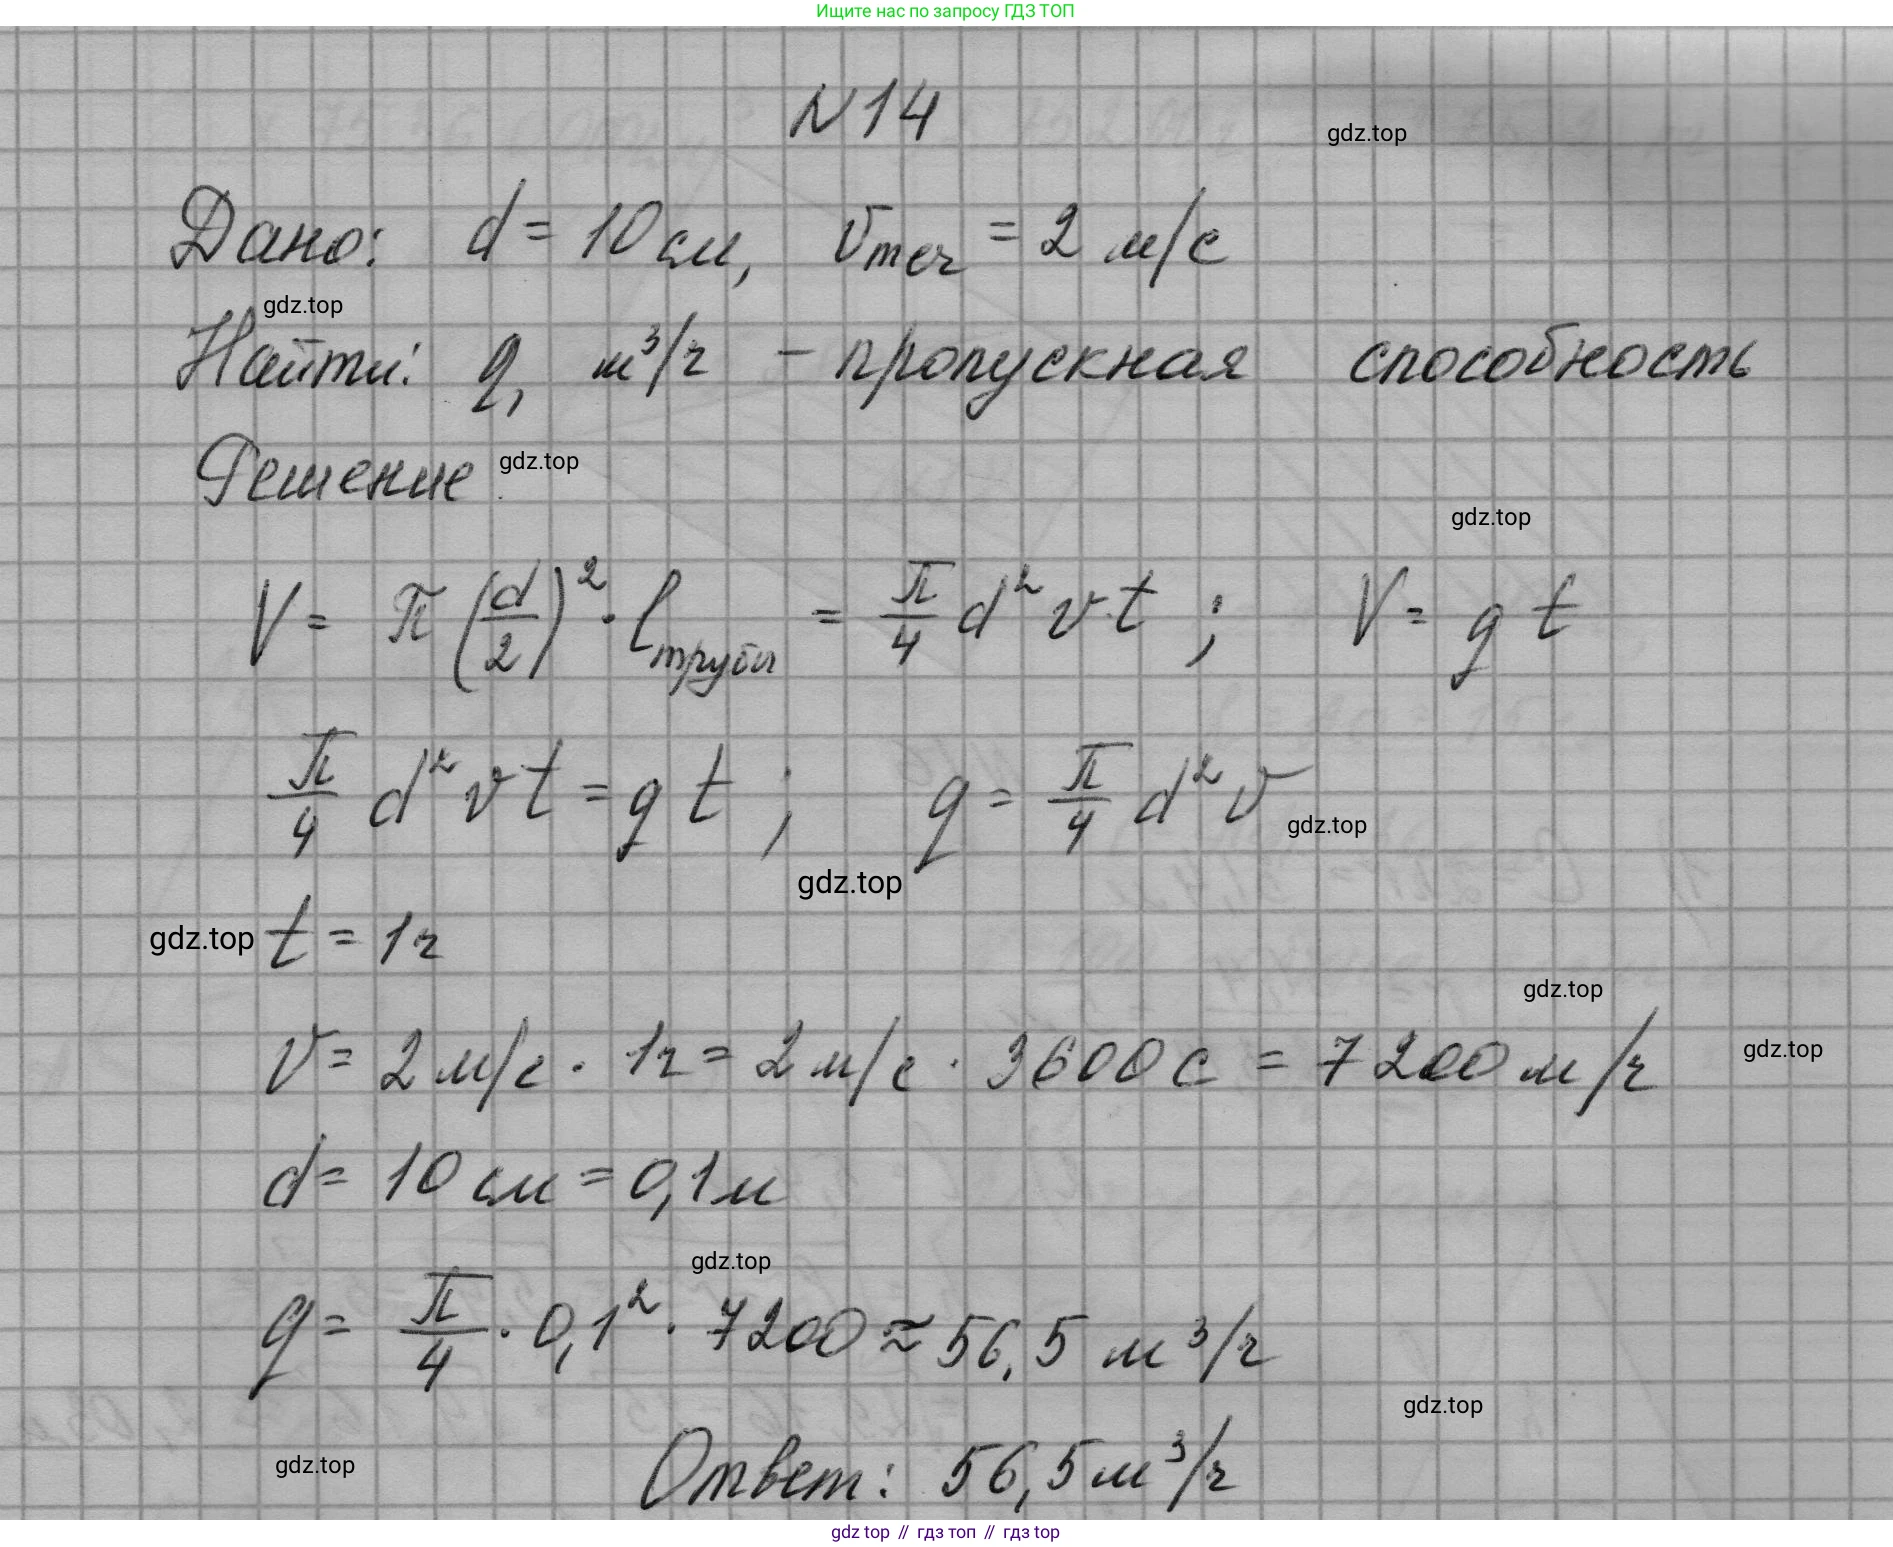 Ищите нас по запросу ГДЗ ТОП
N14
gdz.top
Дано: d = 10 см, v теч = 2 м/с
gdz.top
Найти: q, м³/ч – пропускная способность
Решение
gdz.top
gdz.top
V = π (d/2)² · l трубы = π/4 d² v t ; V = q t
π/4 d² v t = q t ; q = π/4 d² v
gdz.top
gdz.top
gdz.top
t = 1 ч
gdz.top
v = 2 м/с · 1ч = 2 м/с · 3600 с = 7200 м/ч
gdz.top
d = 10 см = 0,1 м
gdz.top
q = π/4 · 0,1² · 7200 ≈ 56,5 м³/ч
gdz.top
gdz.top
Ответ: 56,5 м³/ч
gdz top // гдз топ // гдз top